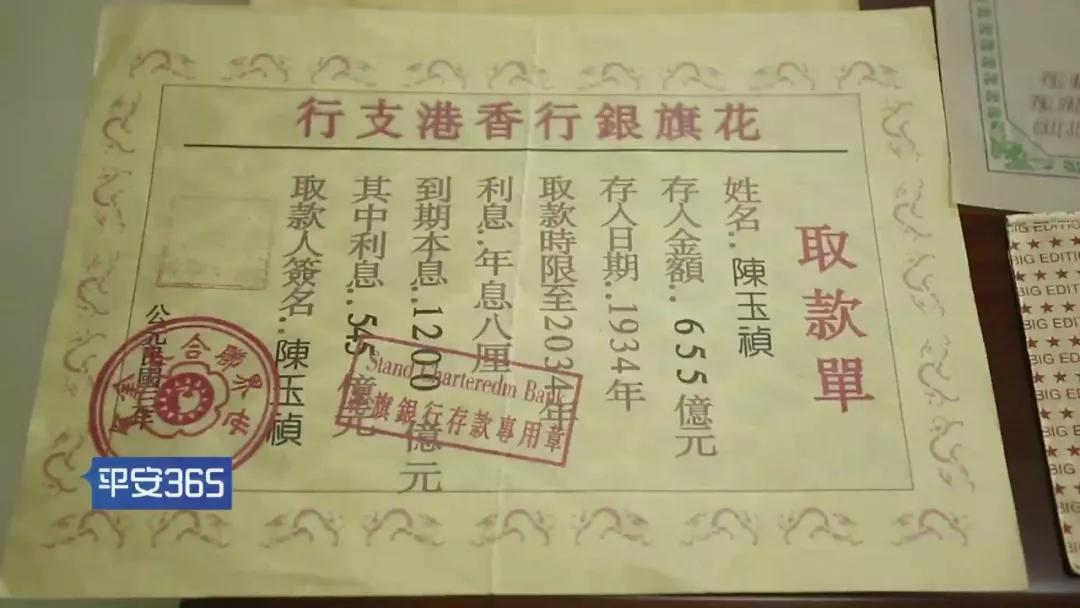 花旗銀行香港支行
取款單
姓名..陳玉禎
存入金額..655億元
存入日期..1934年
取款時限至2034年
利息..年息八厘
到期本息..1200億元
其中利息..545億元
取款人簽名..陳玉禎
Stand Charteredm Bank
花旗銀行存款專用章
平安365
BIG EDITI
BIG EDITI
BIG EDITI
BIG EDIT
BIG EDIT
BIG EDI
BIG EDI